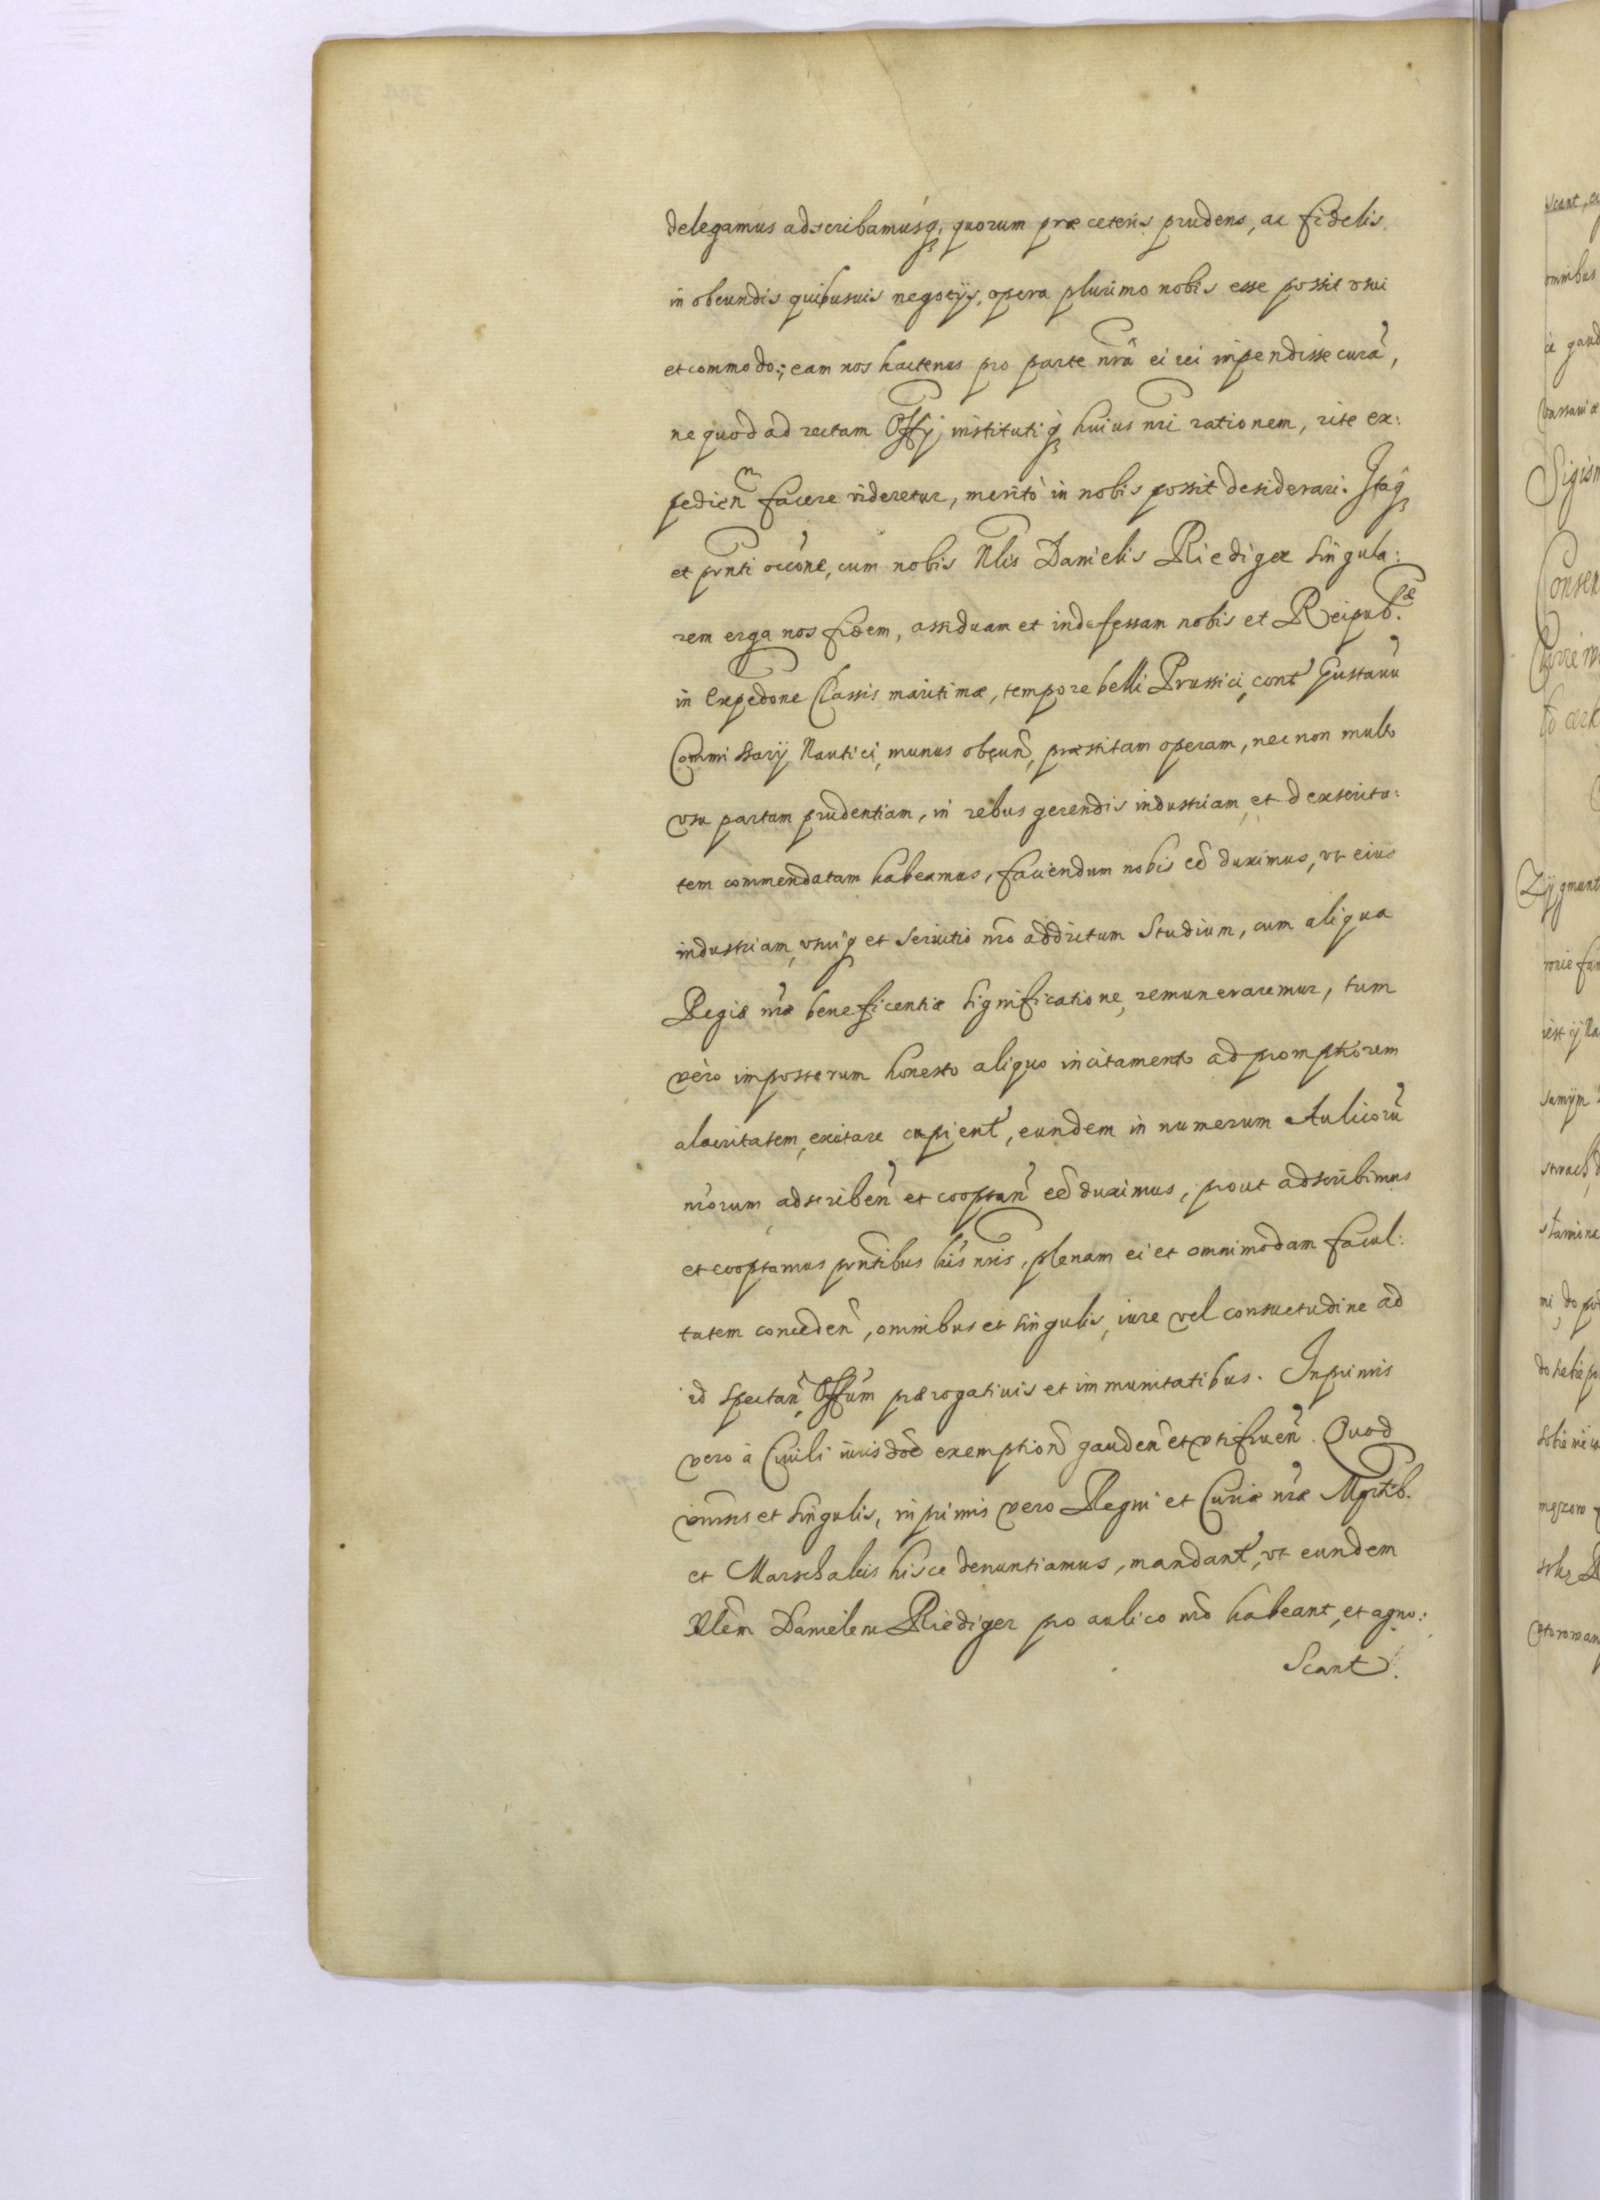 delegamus adscribamusq̨, quorum præ ceteris prudens, ac fidelis
in obeundis quibusuis negocijs, opera plurimo nobis esse possit vsui
et commodo; eam nos hactenus pro parte nr̃a ei rei inpendisse curã,
ne quod ad rectam Offij, institutiq̨ huius nr̃i rationem, rite ex:
pedien̄ facere videretur, meritò in nobis possit desiderari. Itaq̨
et pn̄ti occõne, cum nobis Nlis Danielis Riediger singula:
rem erga nos fidem, assiduam et indefessam nobis et Reipub.æ
in Expedõne Classis maritimæ, tempore belli Prussici, cont̃ Gustauũ
Commissarij Nautici, munus obeuñ, præstitam operam, nec non multo
vsu partam prudentiam, in rebus gerendis industriam, et dexterita:
tem commendatam habeamus, faciendum nobis eẽ duximus, vt eius
industriam, vsuiq̨ et seruitio nr̃o addictum studium, cum aliqua
Regiæ nr̃æ beneficentiæ significatione, remuneraremur, tum
verò imposterum honesto aliquo incitamento ad promptiorem
alacritatem, excitare cupient̃, eundem in numerum Aulicorũ
nr̃orum adscribeñ et cooptañ eẽ duximus, prout adscribimus
et cooptamus pn̄tibus his nr̃is, plenam ei et omnimodam facul:
tatem concedeñ, omnibus et singulis, iure vel consuetudine ad
id spectañ Offium prærogatiuis et immunitatibus. Inprimis
vero à Ciuili iurisdõe exemptionẽ gaudeñ et vti frueñ. Quod
vniuersis et singulis, inprimis vero Regni et Curiæ nr̃æ Mgrtib.
et Marschalcis hisce denuntiamus, mandant̃, vt eundem
Nlem Danielem Riediger pro aulico nr̃o habeant, et agno:
scant.